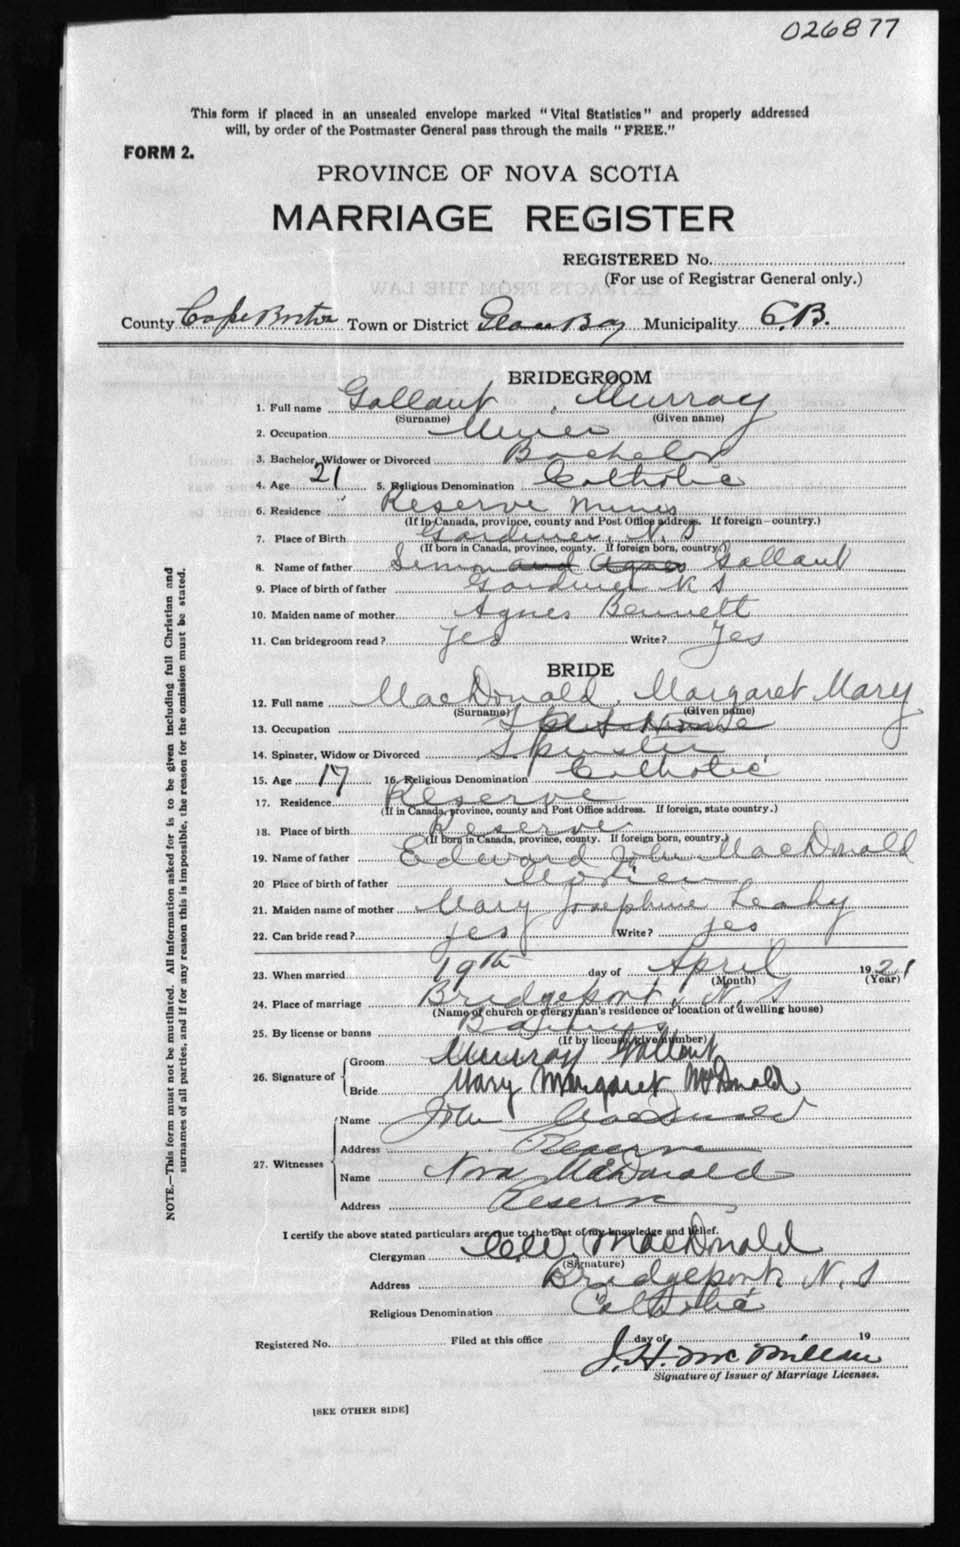 026877
This form if placed in an unsealed envelope marked "Vital Statistics" and properly addressed
will, by order of the Postmaster General pass through the mails "FREE."
FORM 2.
PROVINCE OF NOVA SCOTIA
MARRIAGE REGISTER
REGISTERED No.
(For use of Registrar General only.)
County Cape Breton Town or District Glace Bay Municipality C.B.
BRIDEGROOM
1. Full name Gallant, Murray
(Surname) (Given name)
2. Occupation Miner
3. Bachelor, Widower or Divorced Bachelor
4. Age 21 5. Religious Denomination Catholic
6. Residence Reserve Mines
(If in Canada, province, county and Post Office address. If foreign—country.)
7. Place of Birth Gardiner, N. S
(If born in Canada, province, county. If foreign born, country.)
8. Name of father Simon and Agnes Gallant
9. Place of birth of father Gardiner N S
10. Maiden name of mother Agnes Bennett
11. Can bridegroom read? yes Write? Yes
BRIDE
12. Full name MacDonald, Margaret Mary
(Surname) (Given name)
13. Occupation At Home
14. Spinster, Widow or Divorced Spinster
15. Age 17 16. Religious Denomination Catholic
17. Residence Reserve
(If in Canada, province, county and Post Office address. If foreign, state country.)
18. Place of birth Reserve
(If born in Canada, province, county. If foreign born, country.)
19. Name of father Edward John MacDonald
20 Place of birth of father Morien
21. Maiden name of mother Mary Josephine Leahy
22. Can bride read? yes Write? yes
23. When married 19th day of April 1921
(Month) (Year)
24. Place of marriage Bridgeport, N. S
(Name of church or clergyman's residence or location of dwelling house)
25. By license or banns Banns
(If by license, give number)
26. Signature of Groom Murray Gallant
Bride Mary Margaret McDonald
27. Witnesses Name John MacDonald
Address Reserve
Name Nora McDonald
Address Reserve
I certify the above stated particulars are true to the best of my knowledge and belief.
Clergyman MacDonald
(Signature)
Address Bridgeport, N. S
Religious Denomination Catholic
Registered No. Filed at this office day of 19
J. H. McMillan
Signature of Issuer of Marriage Licenses.
[SEE OTHER SIDE]
NOTE.—This form must not be mutilated. All information asked for is to be given including full Christian and
surnames of all parties, and if for any reason this is impossible, the reason for the omission must be stated.